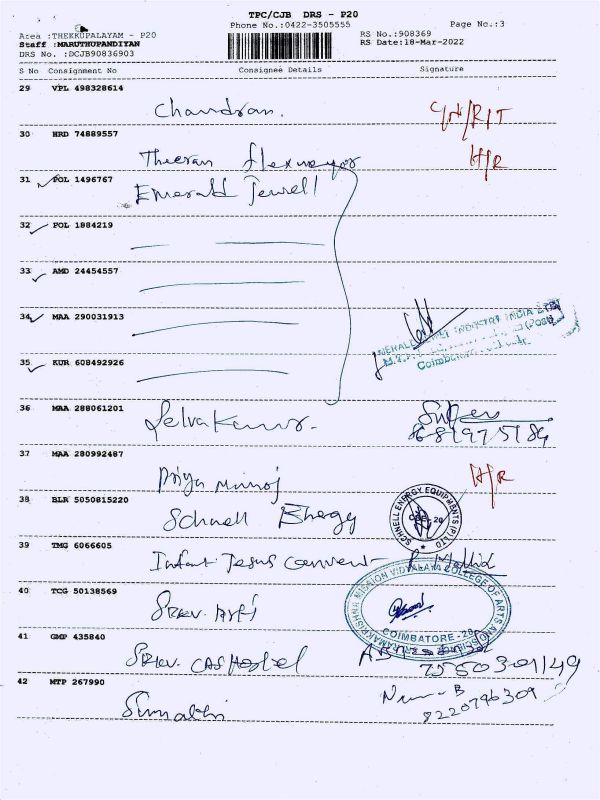 TPC/CJB DRS - P20
Phone No.:0422-3505555
Page No.:3
Area :THEKKUPALAYAM - P20
RS No.:908369
Staff :MARUTHUPANDIYAN
RS Date:18-Mar-2022
DRS No. :DCJB90836903
S No Consignment No Consignee Details Signature
29 VPL 498328614
Chandran.
30 HRD 74889557
Theeran
H/R
31 POL 1496767
Emerald Jewell
32 POL 1884219
33 AMD 24454557
34 MAA 290031913
INDUSTRY INDIA
Coimbatore
35 KUR 608492926
36 MAA 288061201
Selvakumar.
37 MAA 280992487
Priya Manoj
H/R
38 BLR 5050815220
Schnell Energy
SCHNELL ENERGY EQUIPMENTS (P) LTD
39 TMG 6066605
Infant Jesus convent
40 TCG 50138569
SRKV. Arts
RAMAKRISHNA MISSION VIDYALAYA COLLEGE OF ARTS AND SCIENCE
COIMBATORE - 20
41 GMP 435840
SRKV. CAS Hostel
7550301149
42 MTP 267990
Sumathi
8220796309